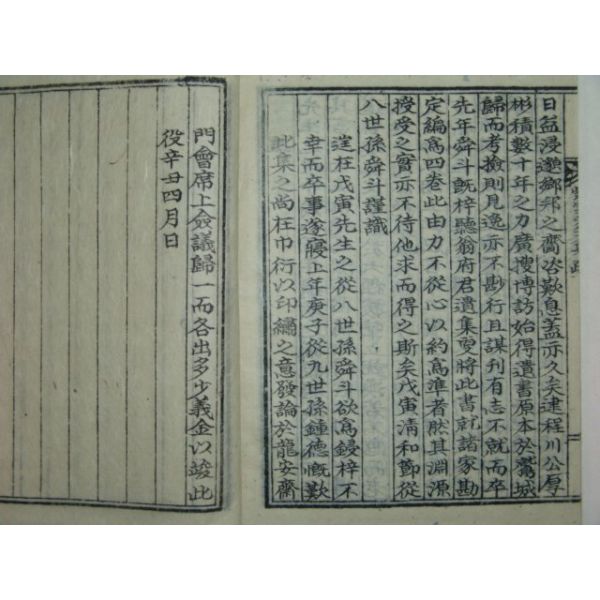 日益浸邈鄉邦之齎咨歎息蓋亦久矣逮程川公厚
彬積數十年之力廣搜博訪始得遺書原本於鷲城
歸而考檢則見逸亦不尠行且謀刊有志不就而卒
先年舜斗旣梓聽翁府君遺集更將此書就諸家勘
定編爲四卷此由力不從心以約爲準者然其淵源
授受之實亦不待他求而得之斯矣戊寅清和節從
八世孫舜斗謹識
䢛在戊寅先生之從八世孫舜斗欲爲鋟梓不
幸而卒事遂寢上年庚子從九世孫鍾德慨歎
此集之尚在巾衍以印繡之意發論於龍安齋
門會席上僉議歸一而各出多少義金以竣此
役辛丑四月日